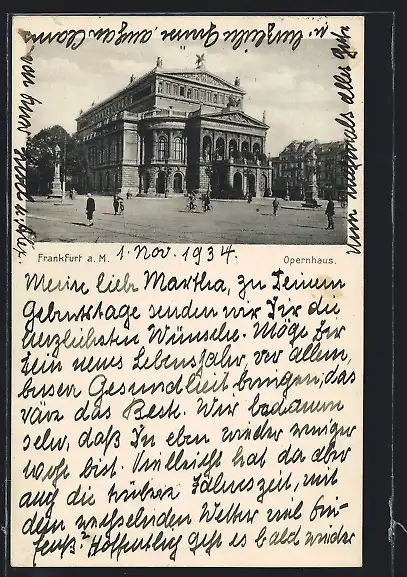 Frankfurt a. M.
Opernhaus.
1. Nov. 1934.
Meine liebe Martha, zu Deinem
Geburtstage senden wir Dir die
herzlichsten Wünsche. Möge Dir
Dein neues Lebensjahr, vor allem,
besser Gesundheit bringen, das
wäre das Beste. Wir bedauern
sehr, daß Du eben wieder weniger
wohl bist. Vielleicht hat da aber
auch die trübere Jahreszeit, mit
dem wechselnden Wetter viel Ein-
fluß? Hoffentlich geht es bald wieder
Nun nochmals alles Gute
u. herzliche Grüsse, auch an Claus
von Euer